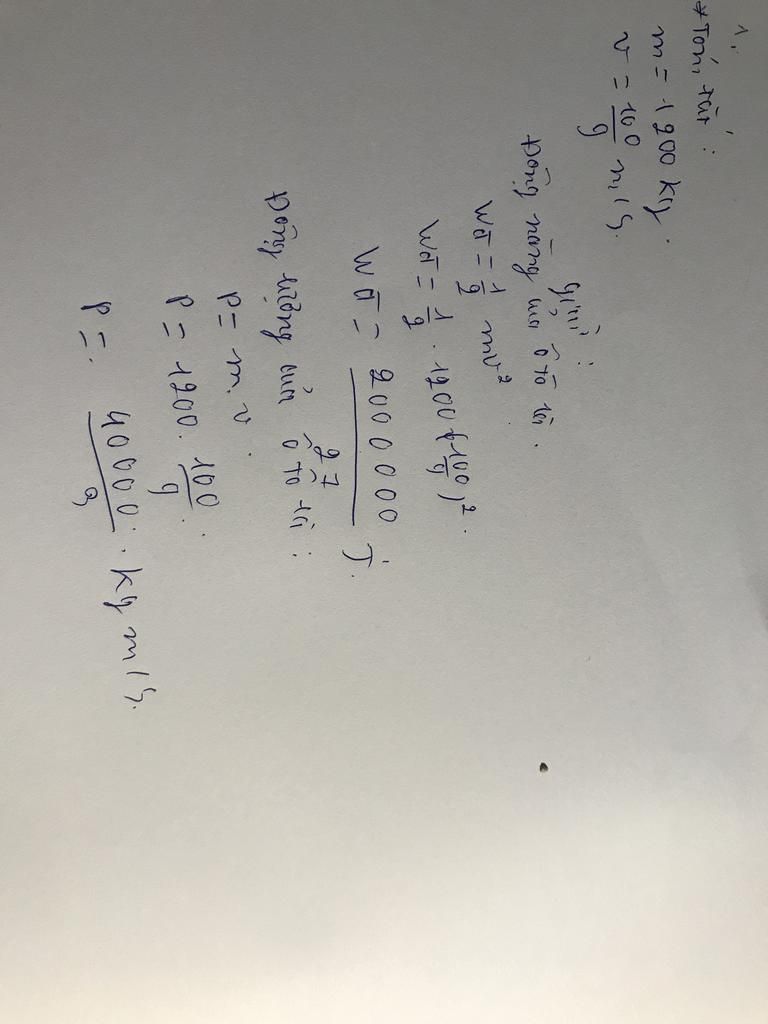 1.
*Tóm tắt:
m = 1200 kg.
v = 100/9 m/s.
Giải:
Động năng của ô tô là.
Wđ = 1/2 mv²
Wđ = 1/2 . 1200 . (100/9)².
Wđ = 2000000/27 J.
Động lượng của ô tô là:
p = m.v.
p = 1200. 100/9.
p = 40000/3 . kg m/s.